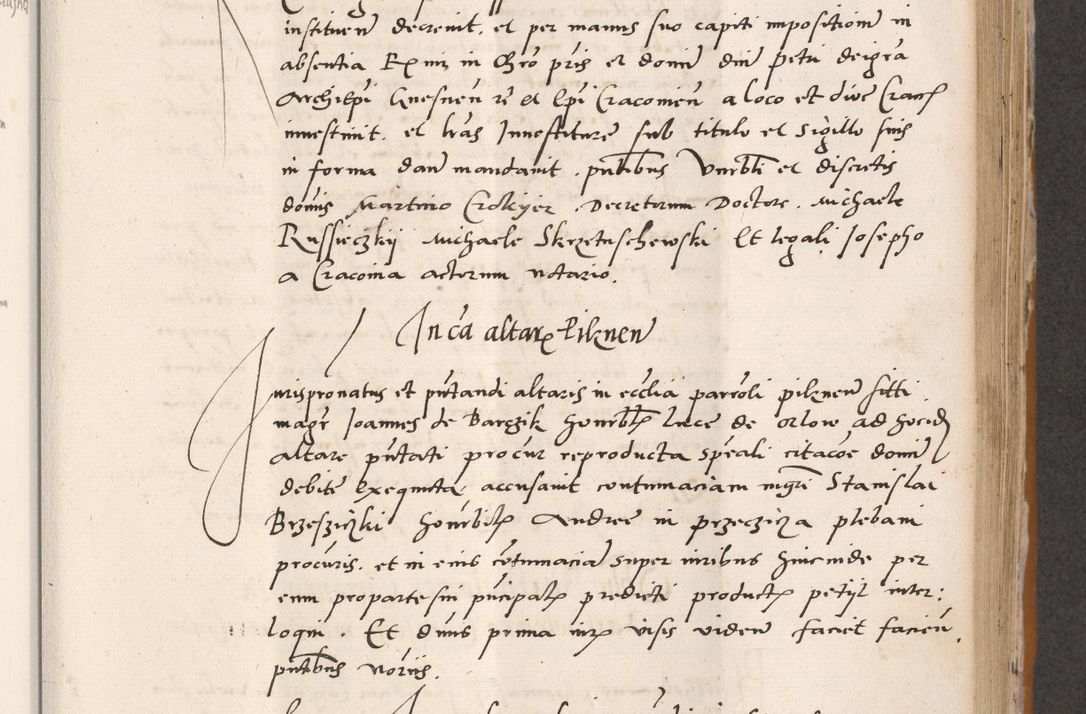 instituen decrevit et per manus suo capiti impositionem in
absentia Rmi in Chro pris et domi dni petri dei gra
Archiepi Gnesnen re et Epi Cracovien a loco et dive Crac
investivit et lras Investiture sub titulo et sigillo suis
in forma dan mandavit pntibus Vnrbli et discretis
domis Martino Crokyer Decretorum Doctore Michaele
Russieczkij Michaele Skrzetuschewski Et legali Josepho
a Cracovia actorum notario.
In ca altaris Pilznen
Jurispronatus et pntandi altaris in ecclia parroli pilznen siti
magr Joannes de Barczik honrblis Luce de Orlow ad hocid
altare pntati procur reproducta speali citacoe domi
debite Exequuta accusavit contumaciam mgri Stanislai
Brzesziczki honrbilis Andree in przeczicza plebani
procuris et in eius cotumacia super iuribus hincinde per
eum pro parte sui pncipalis predicti productis petijt inter:
loqui. Et dnus prima iuris visis viden faciet facien
pntibus notiis.